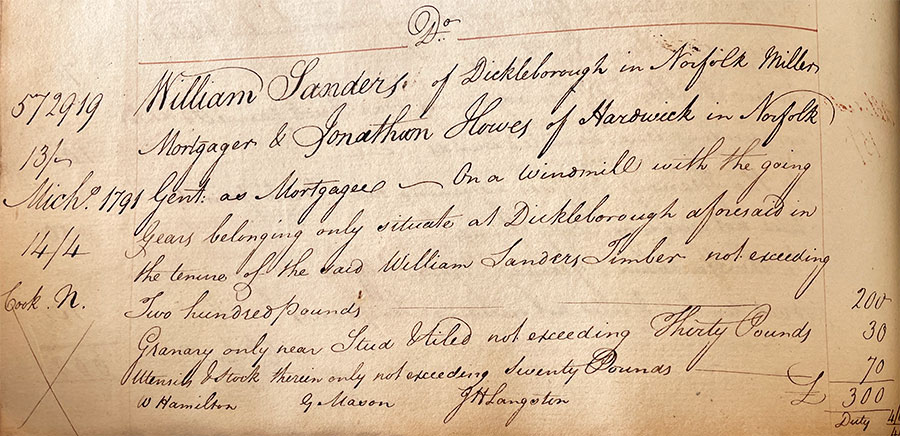 Do
572919 William Sanders of Dickleborough in Norfolk Miller
13/- Mortgager & Jonathan Howes of Hardwick in Norfolk
Micho. 1791 Gent: as Mortgagee — On a windmill with the going
14/4 Gears belonging only situate at Dickleborough aforesaid in
the tenure of the said William Sanders Timber not exceeding
Cook. N. Two hundred Pounds 200
Granary only near Stud & tiled not exceeding Thirty Pounds 30
Utensils & Stock therein only not exceeding Seventy Pounds 70
W Hamilton G Mason JH Langston £ 300
Duty